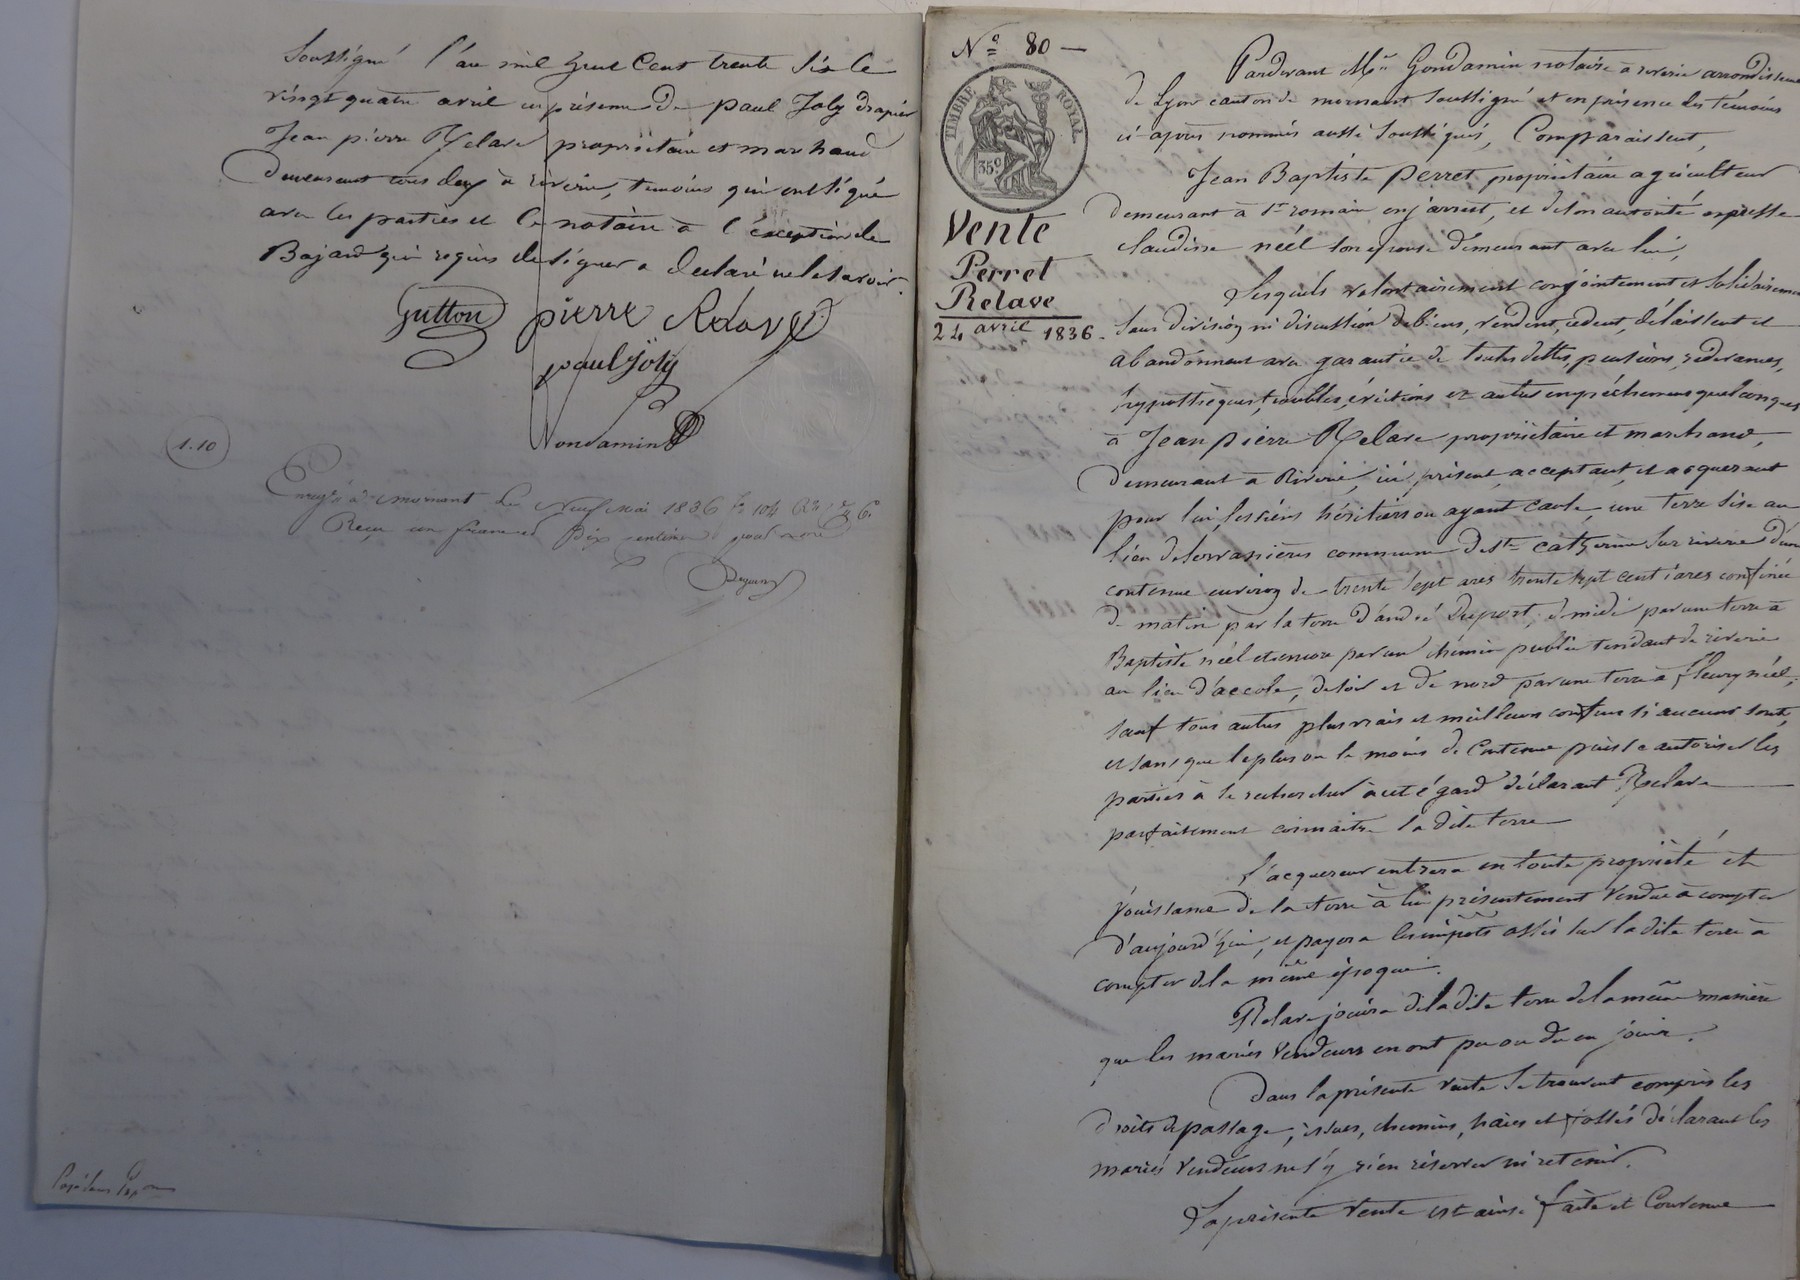 Soussigné l'an mil huit cent trente six le
vingt quatre avril en présence de paul Joly drapier
Jean pierre Relave propriétaire et marchand
demeurant tous deux à riverie, temoins qui ont signé
avec les parties et le notaire à l'éxception de
Bajard qui requis de signer a declaré ne le savoir.
Gutton pierre Relave
paul Joly
Gondamin
1.10
Enregé à mornant le Neuf Mai 1836 fo 104
Reçu un franc et dix centimes
N° 80 —
TIMBRE ROYAL
35 c
Vente
Perret
Relave
24 avril 1836.
Pardevant Me Gondamin notaire à riverie arrondissement
de Lyon canton de mornant soussigné et en présence des témoins
ci-après nommés aussi soussignés, Comparaissent,
Jean Baptiste perret propriétaire agriculteur
demeurant à st romain en jarrest, et de son autorité expresse
claudine néel son epouse demeurant avec lui,
Lesquels volontairement conjointement et solidairement
sans division ni discussion de biens, vendent, cedent, délaissent et
abandonnent avec garantie de toutes dettes, pensions, rédevances,
hypothèques, troubles, évictions et autres empêchemens quelconques
à Jean pierre Relave propriétaire et marchand,
demeurant à Riverie, ici présent, acceptant, et acquerant
pour lui, les siens héritiers ou ayant cause, une terre sise au
lieu de commune de ste catherine sur riverie d'une
contenue environ de trente sept ares trente sept centiares confinée
de matin par la terre d'andré Duport, de midi par une terre à
Baptiste néel et encore par un chemin public tendant de riverie
au lieu d'accole, de soir et de nord par une terre à fleury néel,
sauf tous autres plus vrais et meilleurs confins si aucuns sont,
et sans que le plus ou le moins de Contenue puisse autoriser les
parties à se rechercher à cet égard déclarant Relave
parfaitement connaitre la dite terre
L'acquereur entrera en toute propriété et
jouissance de la terre à lui présentement vendue à compter
d'aujourd'hui, et payera les impôts assis sur la dite terre à
compter de la même époque.
Relave jouira de la dite terre de la même manière
que les mariés Vendeurs en ont pu ou du en jouir.
Dans la présente vente se trouvent compris les
droits de passage, issues, chemins, haies et fossés déclarant les
mariés Vendeurs ne s'y rien réserver ni retenir.
La présente Vente est ainsi faite et Convenue